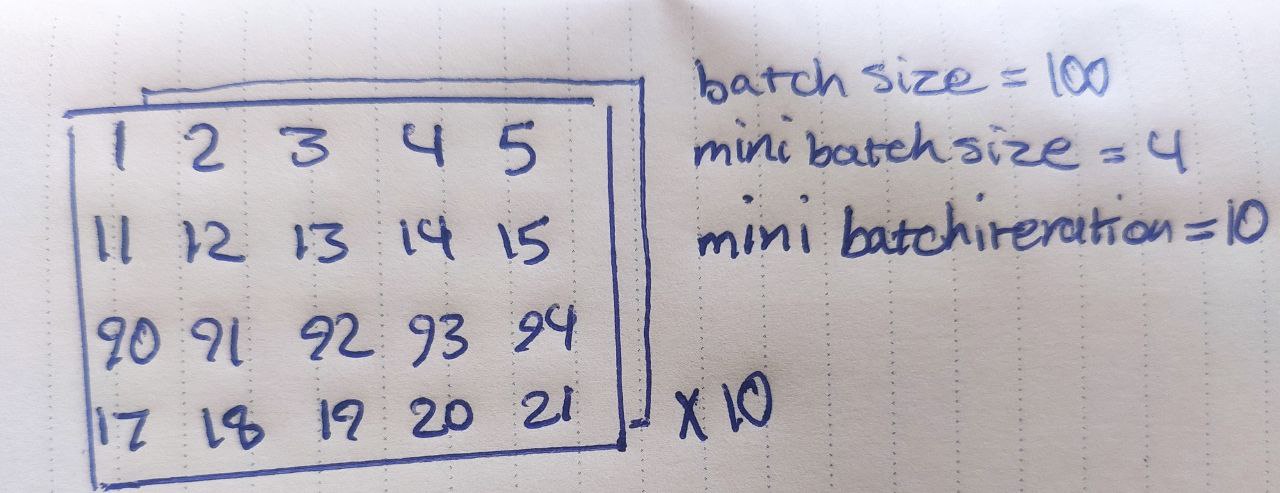 1 2 3 4 5
11 12 13 14 15
90 91 92 93 94
17 18 19 20 21
x 10
batch size = 100
mini batch size = 4
mini batch iteration = 10